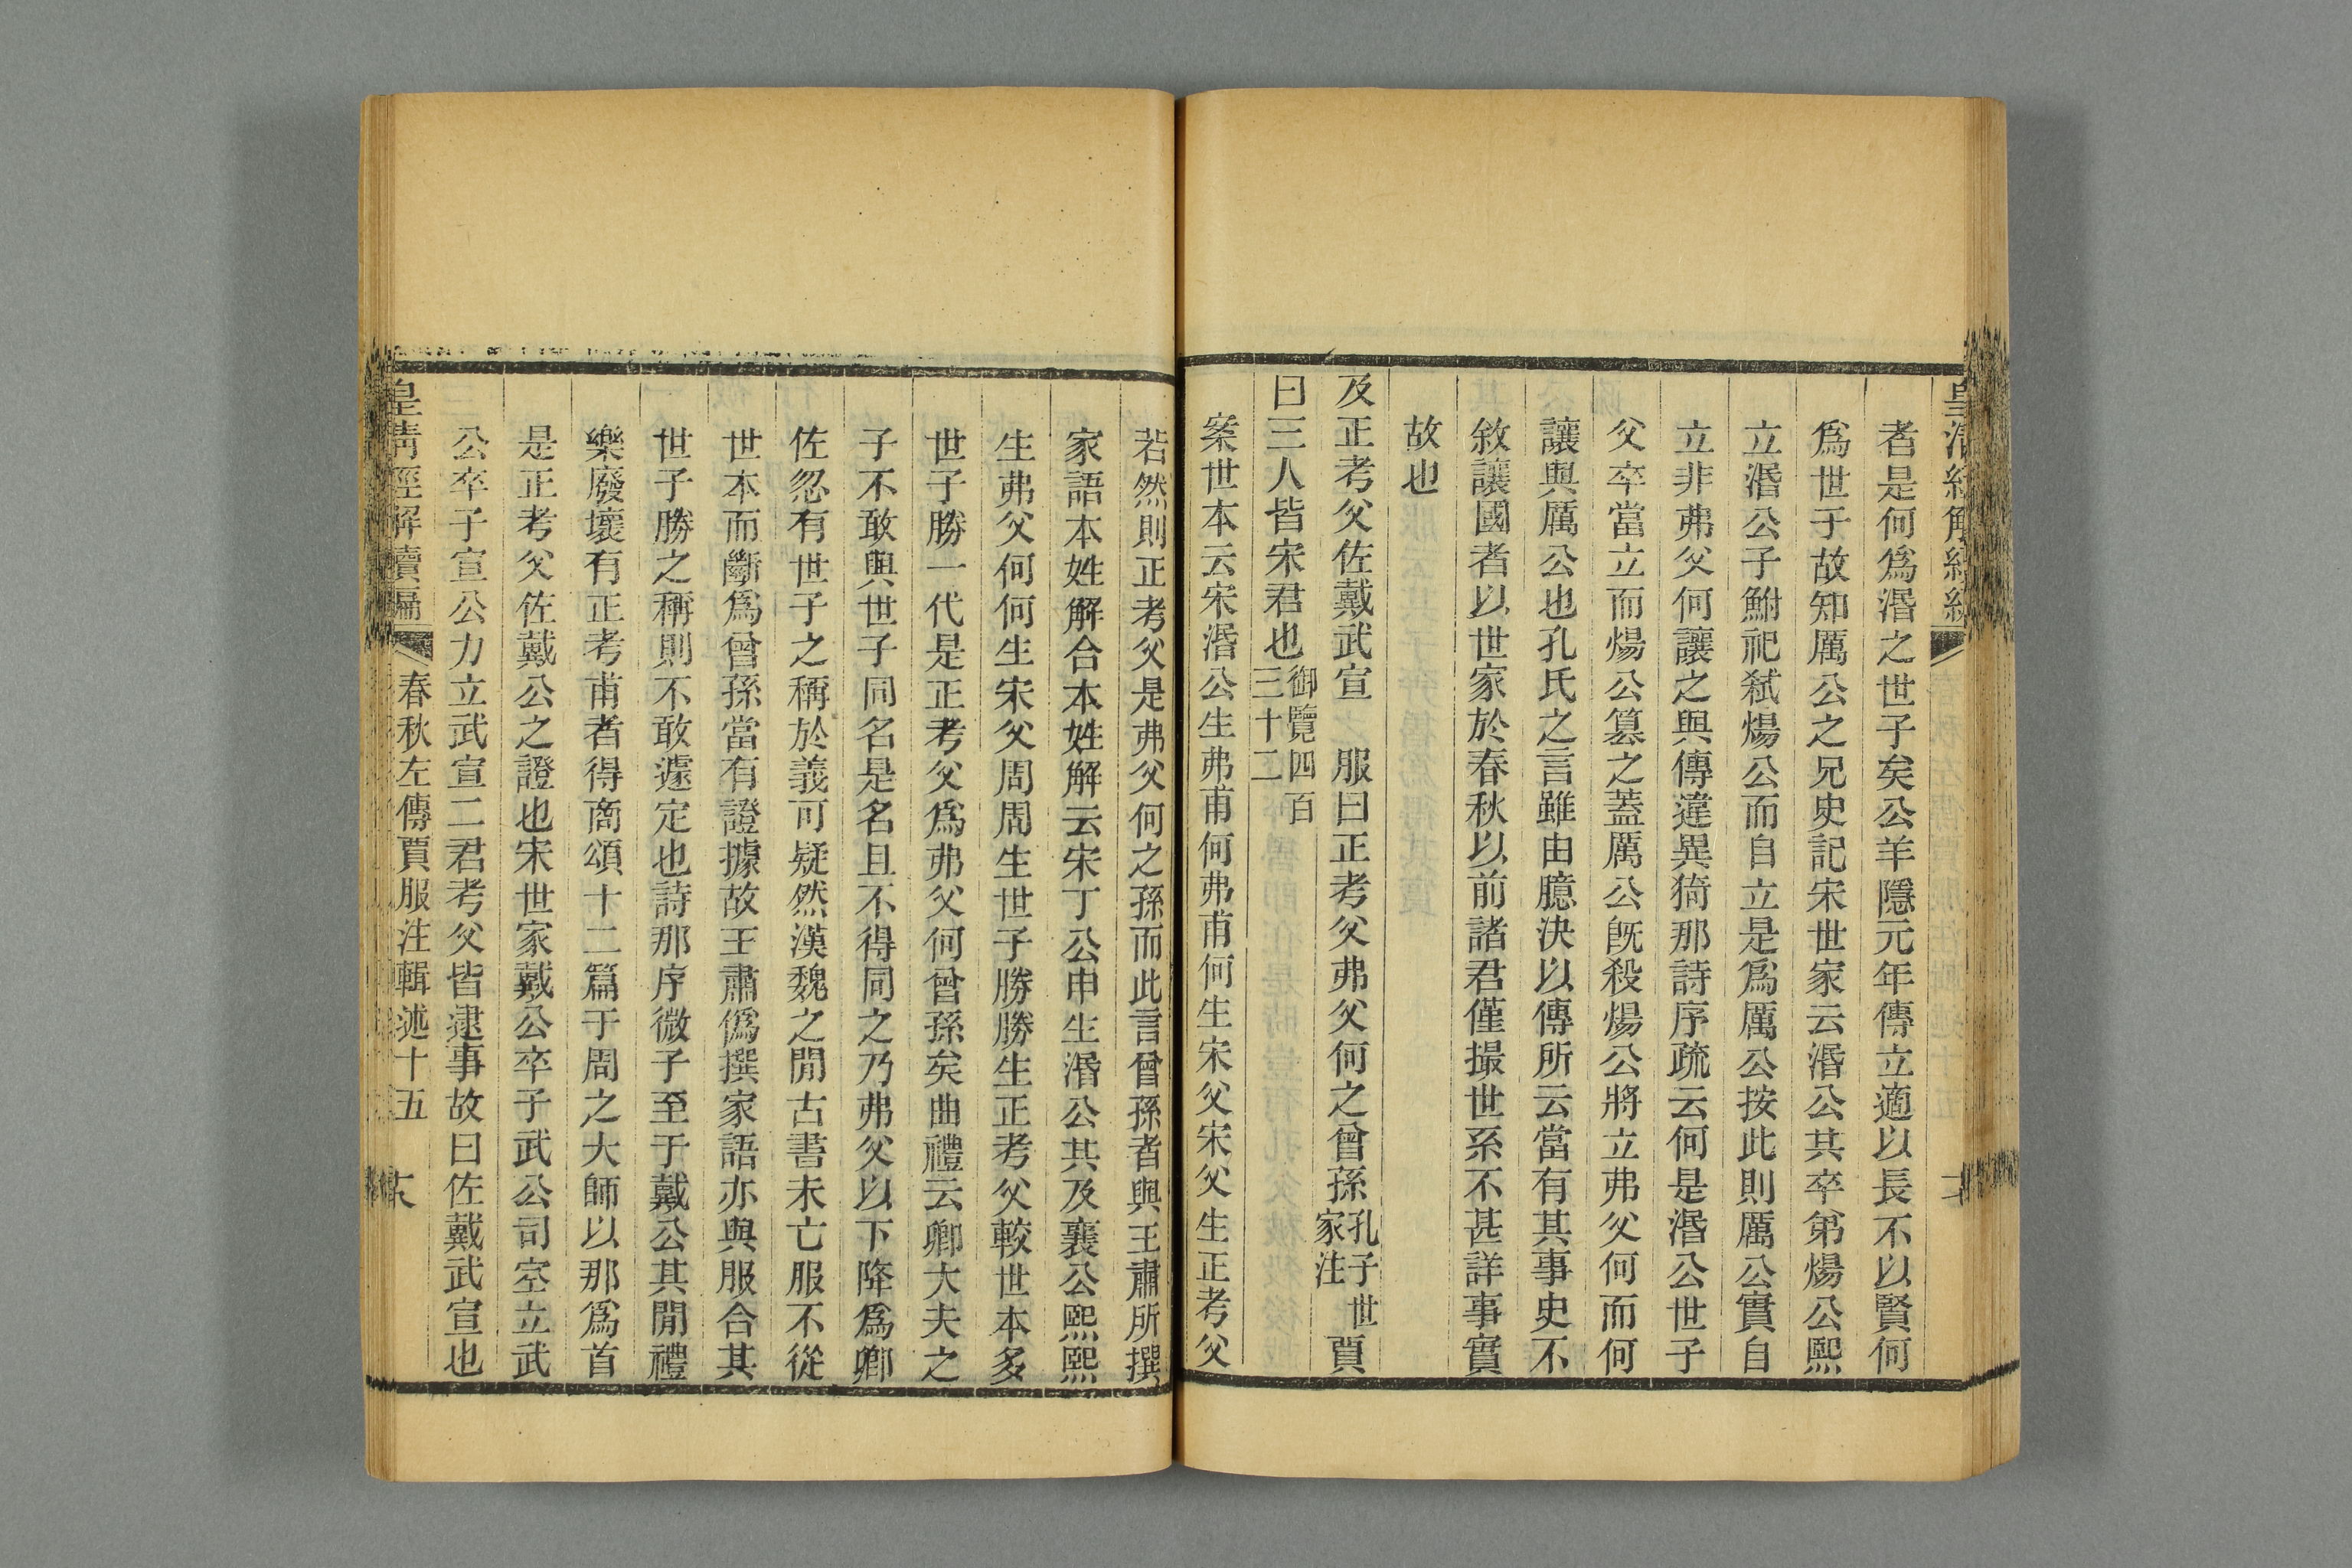 者是何爲湣之世子矣公羊隱元年傳立適以長不以賢何
爲世子故知厲公之兄史記宋世家云湣公共卒弟煬公熙
立湣公子鮒祀弒煬公而自立是爲厲公按此則厲公實自
立非弗父何讓之與傳違異猗那詩序疏云何是湣公世子
父卒當立而煬公篡之蓋厲公旣殺煬公將立弗父何而何
讓與厲公也孔氏之言雖由臆決以傳所云當有其事史不
敘讓國者以世家於春秋以前諸君僅撮世系不甚詳事實
故也
及正考父佐戴武宣 服曰正考父弗父何之曾孫孔子世家注 賈
曰三人皆宋君也御覽四百三十二
案世本云宋湣公生弗甫何弗甫何生宋父宋父生正考父
若然則正考父是弗父何之孫而此言曾孫者與王肅所撰
家語本姓解合本姓解云宋丁公申生湣公共及襄公熙熙
生弗父何何生宋父周周生世子勝勝生正考父較世本多
世子勝一代是正考父爲弗父何曾孫矣曲禮云卿大夫之
子不敢與世子同名是名且不得同之乃弗父以下降爲卿
佐忽有世子之稱於義可疑然漢魏之閒古書未亡服不從
世本而斷爲曾孫當有證據故王肅僞撰家語亦與服合其
世子勝之稱則不敢遽定也詩那序微子至于戴公其閒禮
樂廢壞有正考甫者得商頌十二篇于周之大師以那爲首
是正考父佐戴公之證也宋世家戴公卒子武公司空立武
公卒子宣公力立武宣二君考父皆逮事故曰佐戴武宣也
皇清經解續編 春秋左傳賈服注輯述十五